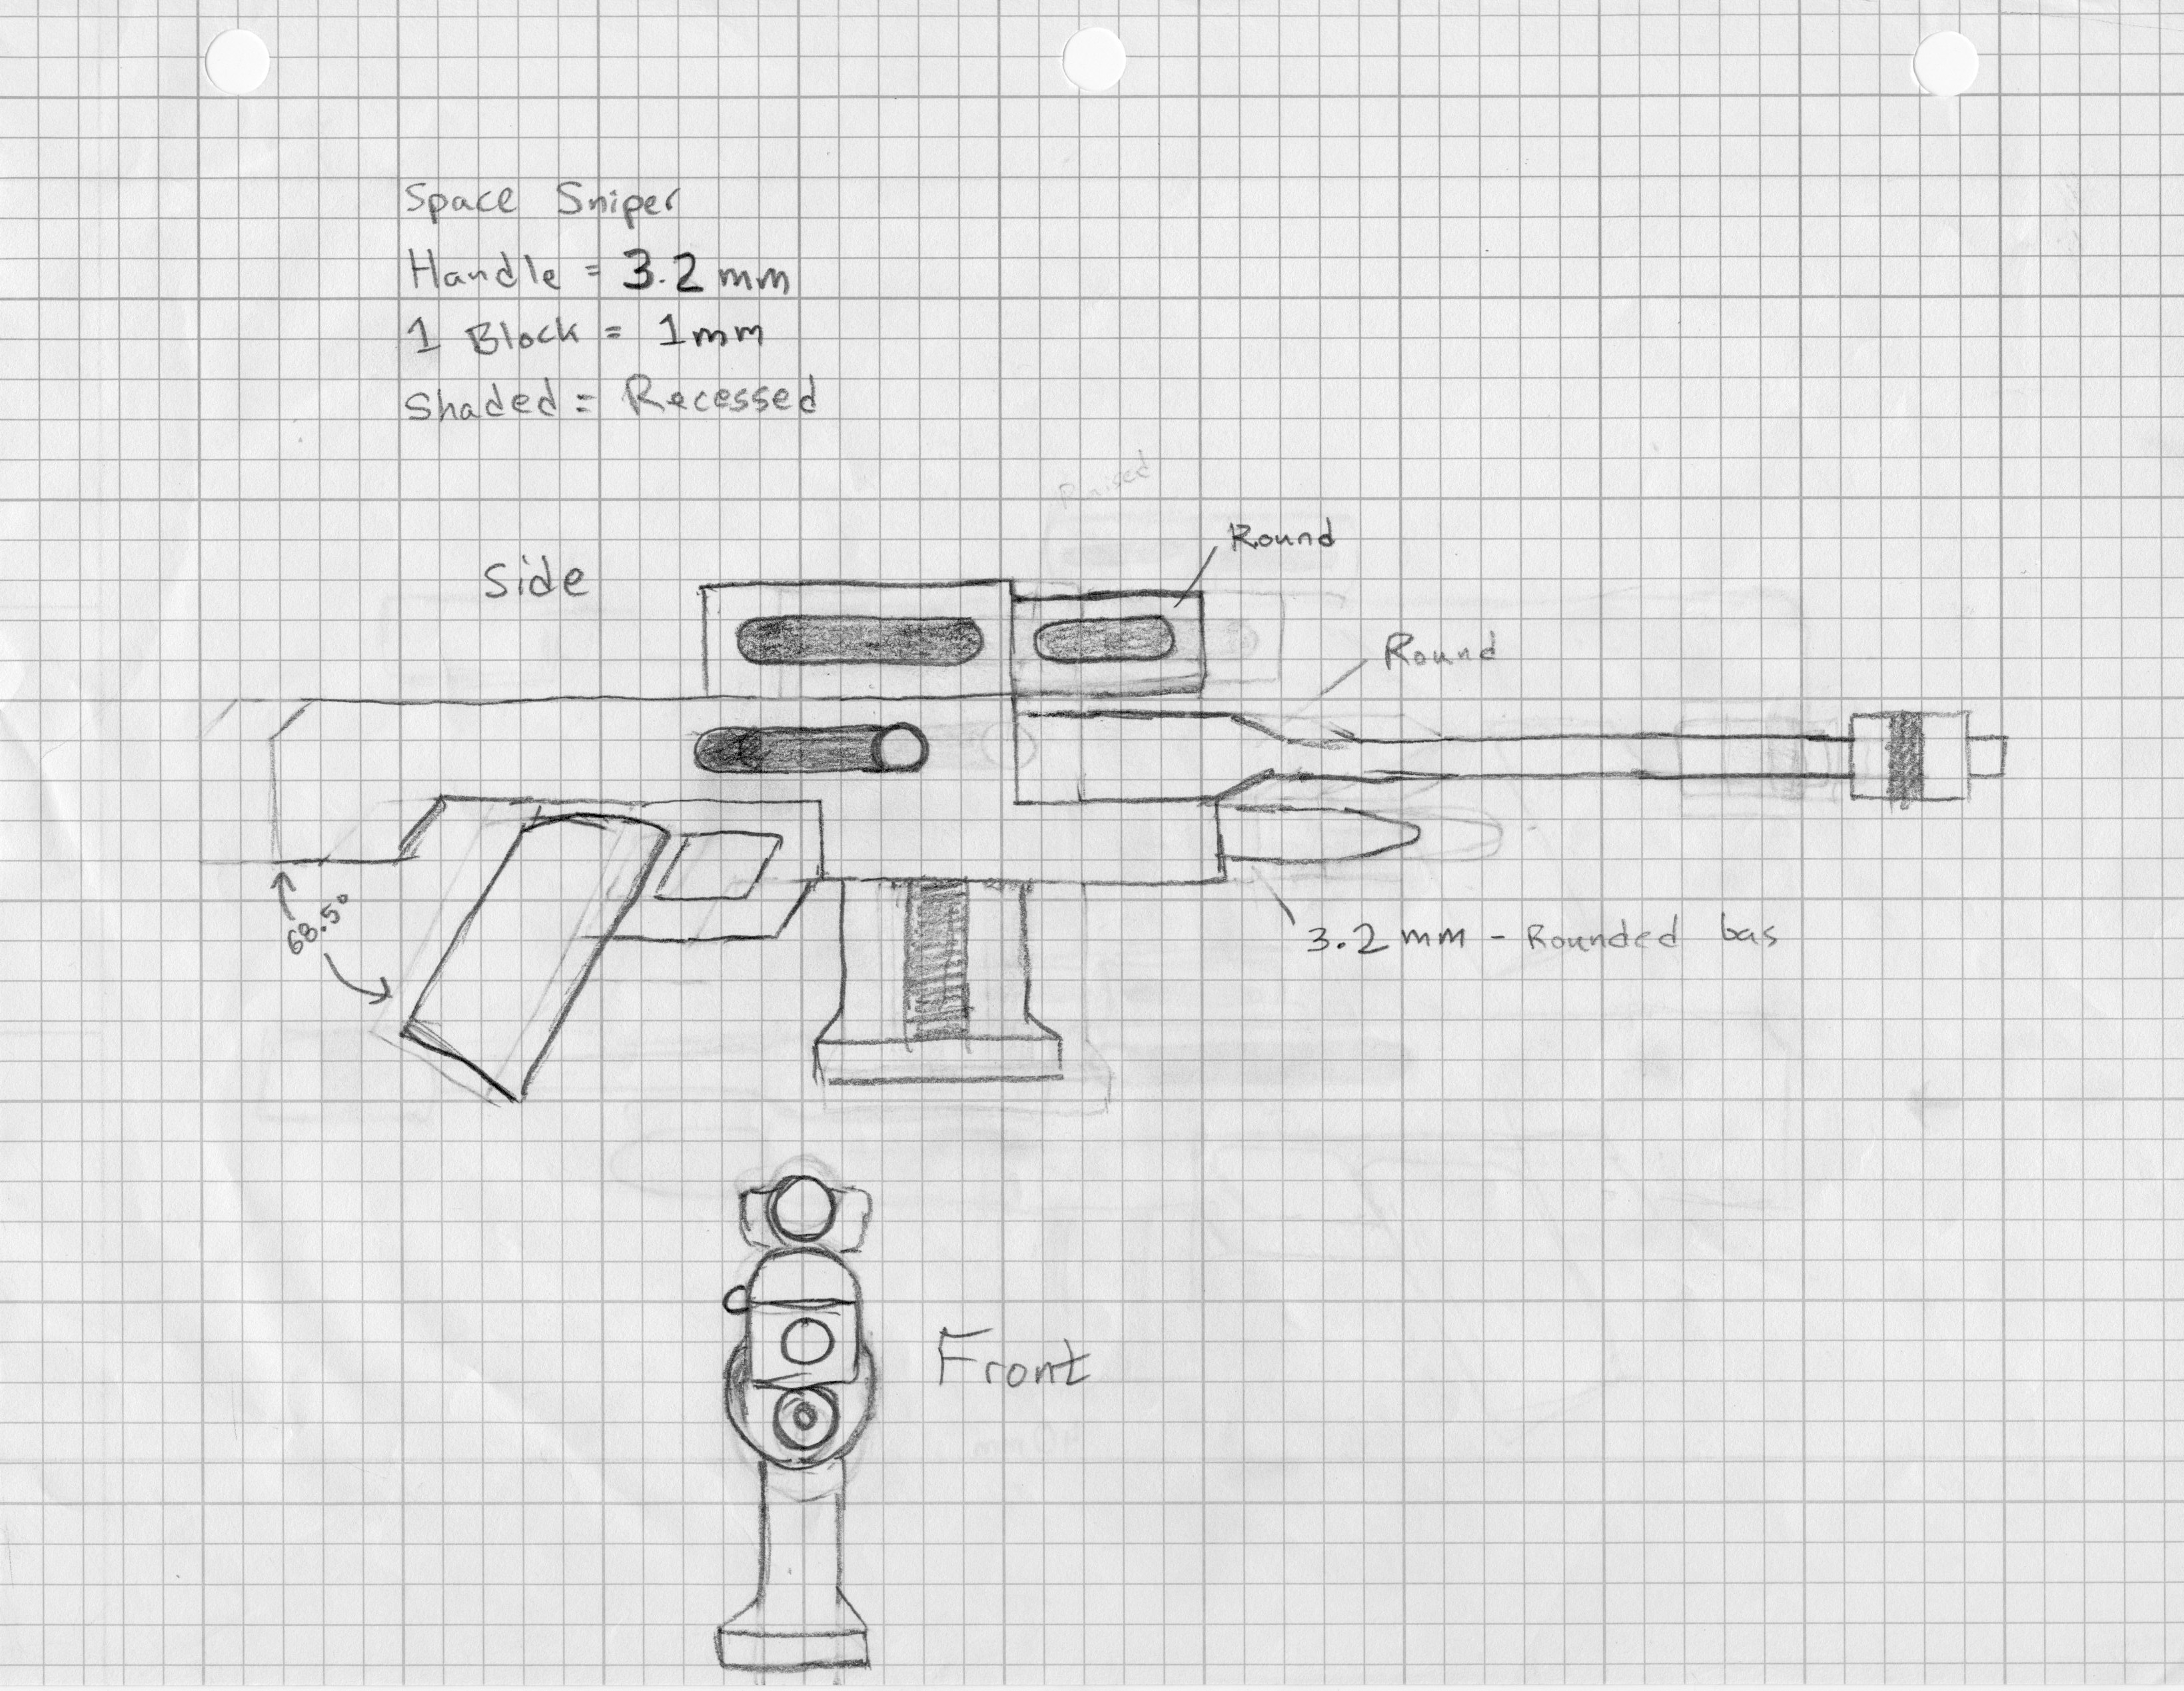 Space Sniper
Handle = 3.2 mm
1 Block = 1mm
Shaded = Recessed
Raised
Round
Side
Round
68.5°
3.2 mm - Rounded bas
Front
40 mm